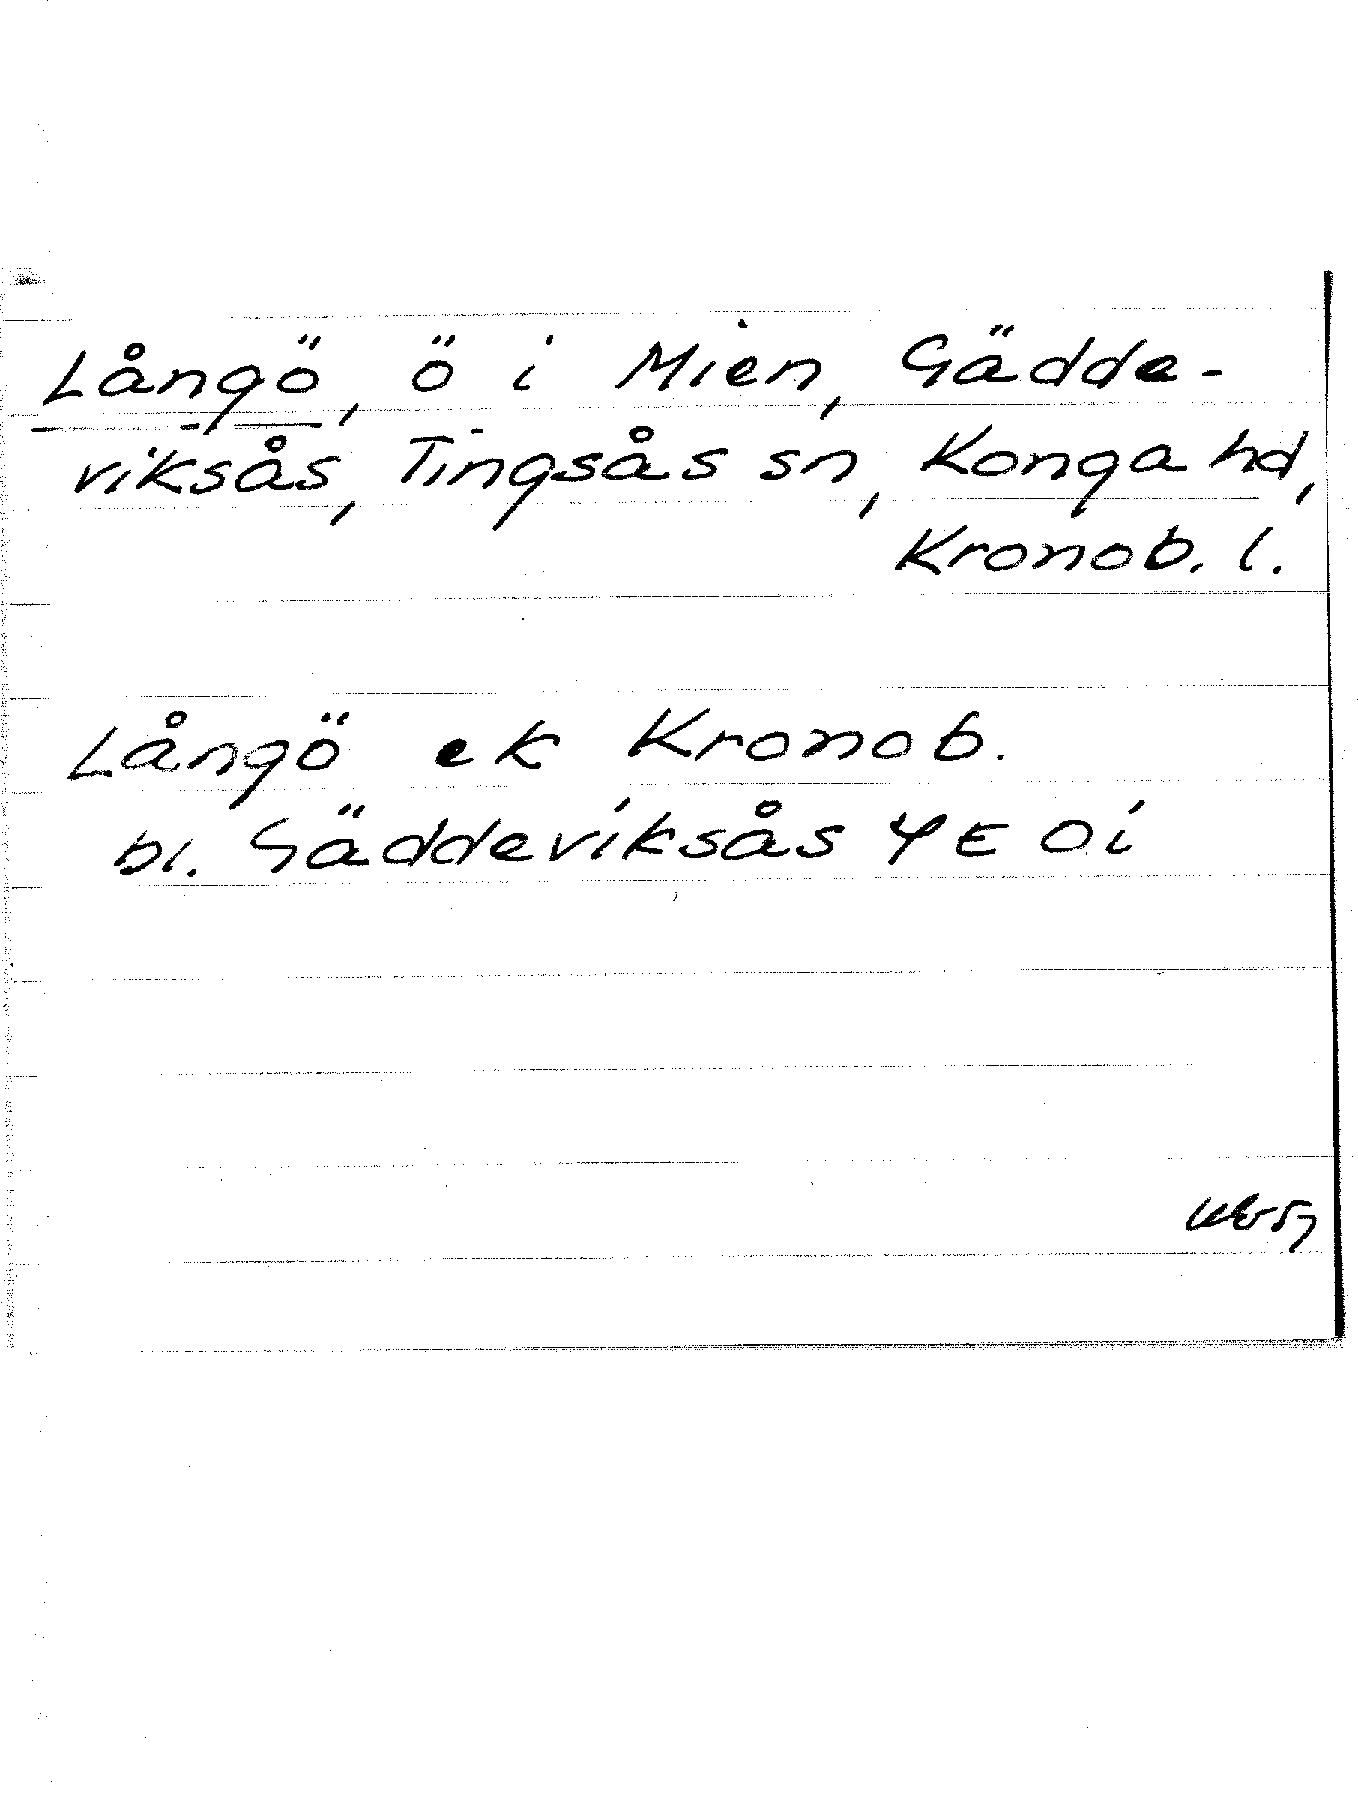 Långö, ö i Mien, Gädde-
viksås, Tingsås sn, Konga hd,
Kronob. l.
Långö ek Kronob.
bl. Gäddeviksås 4E Oi